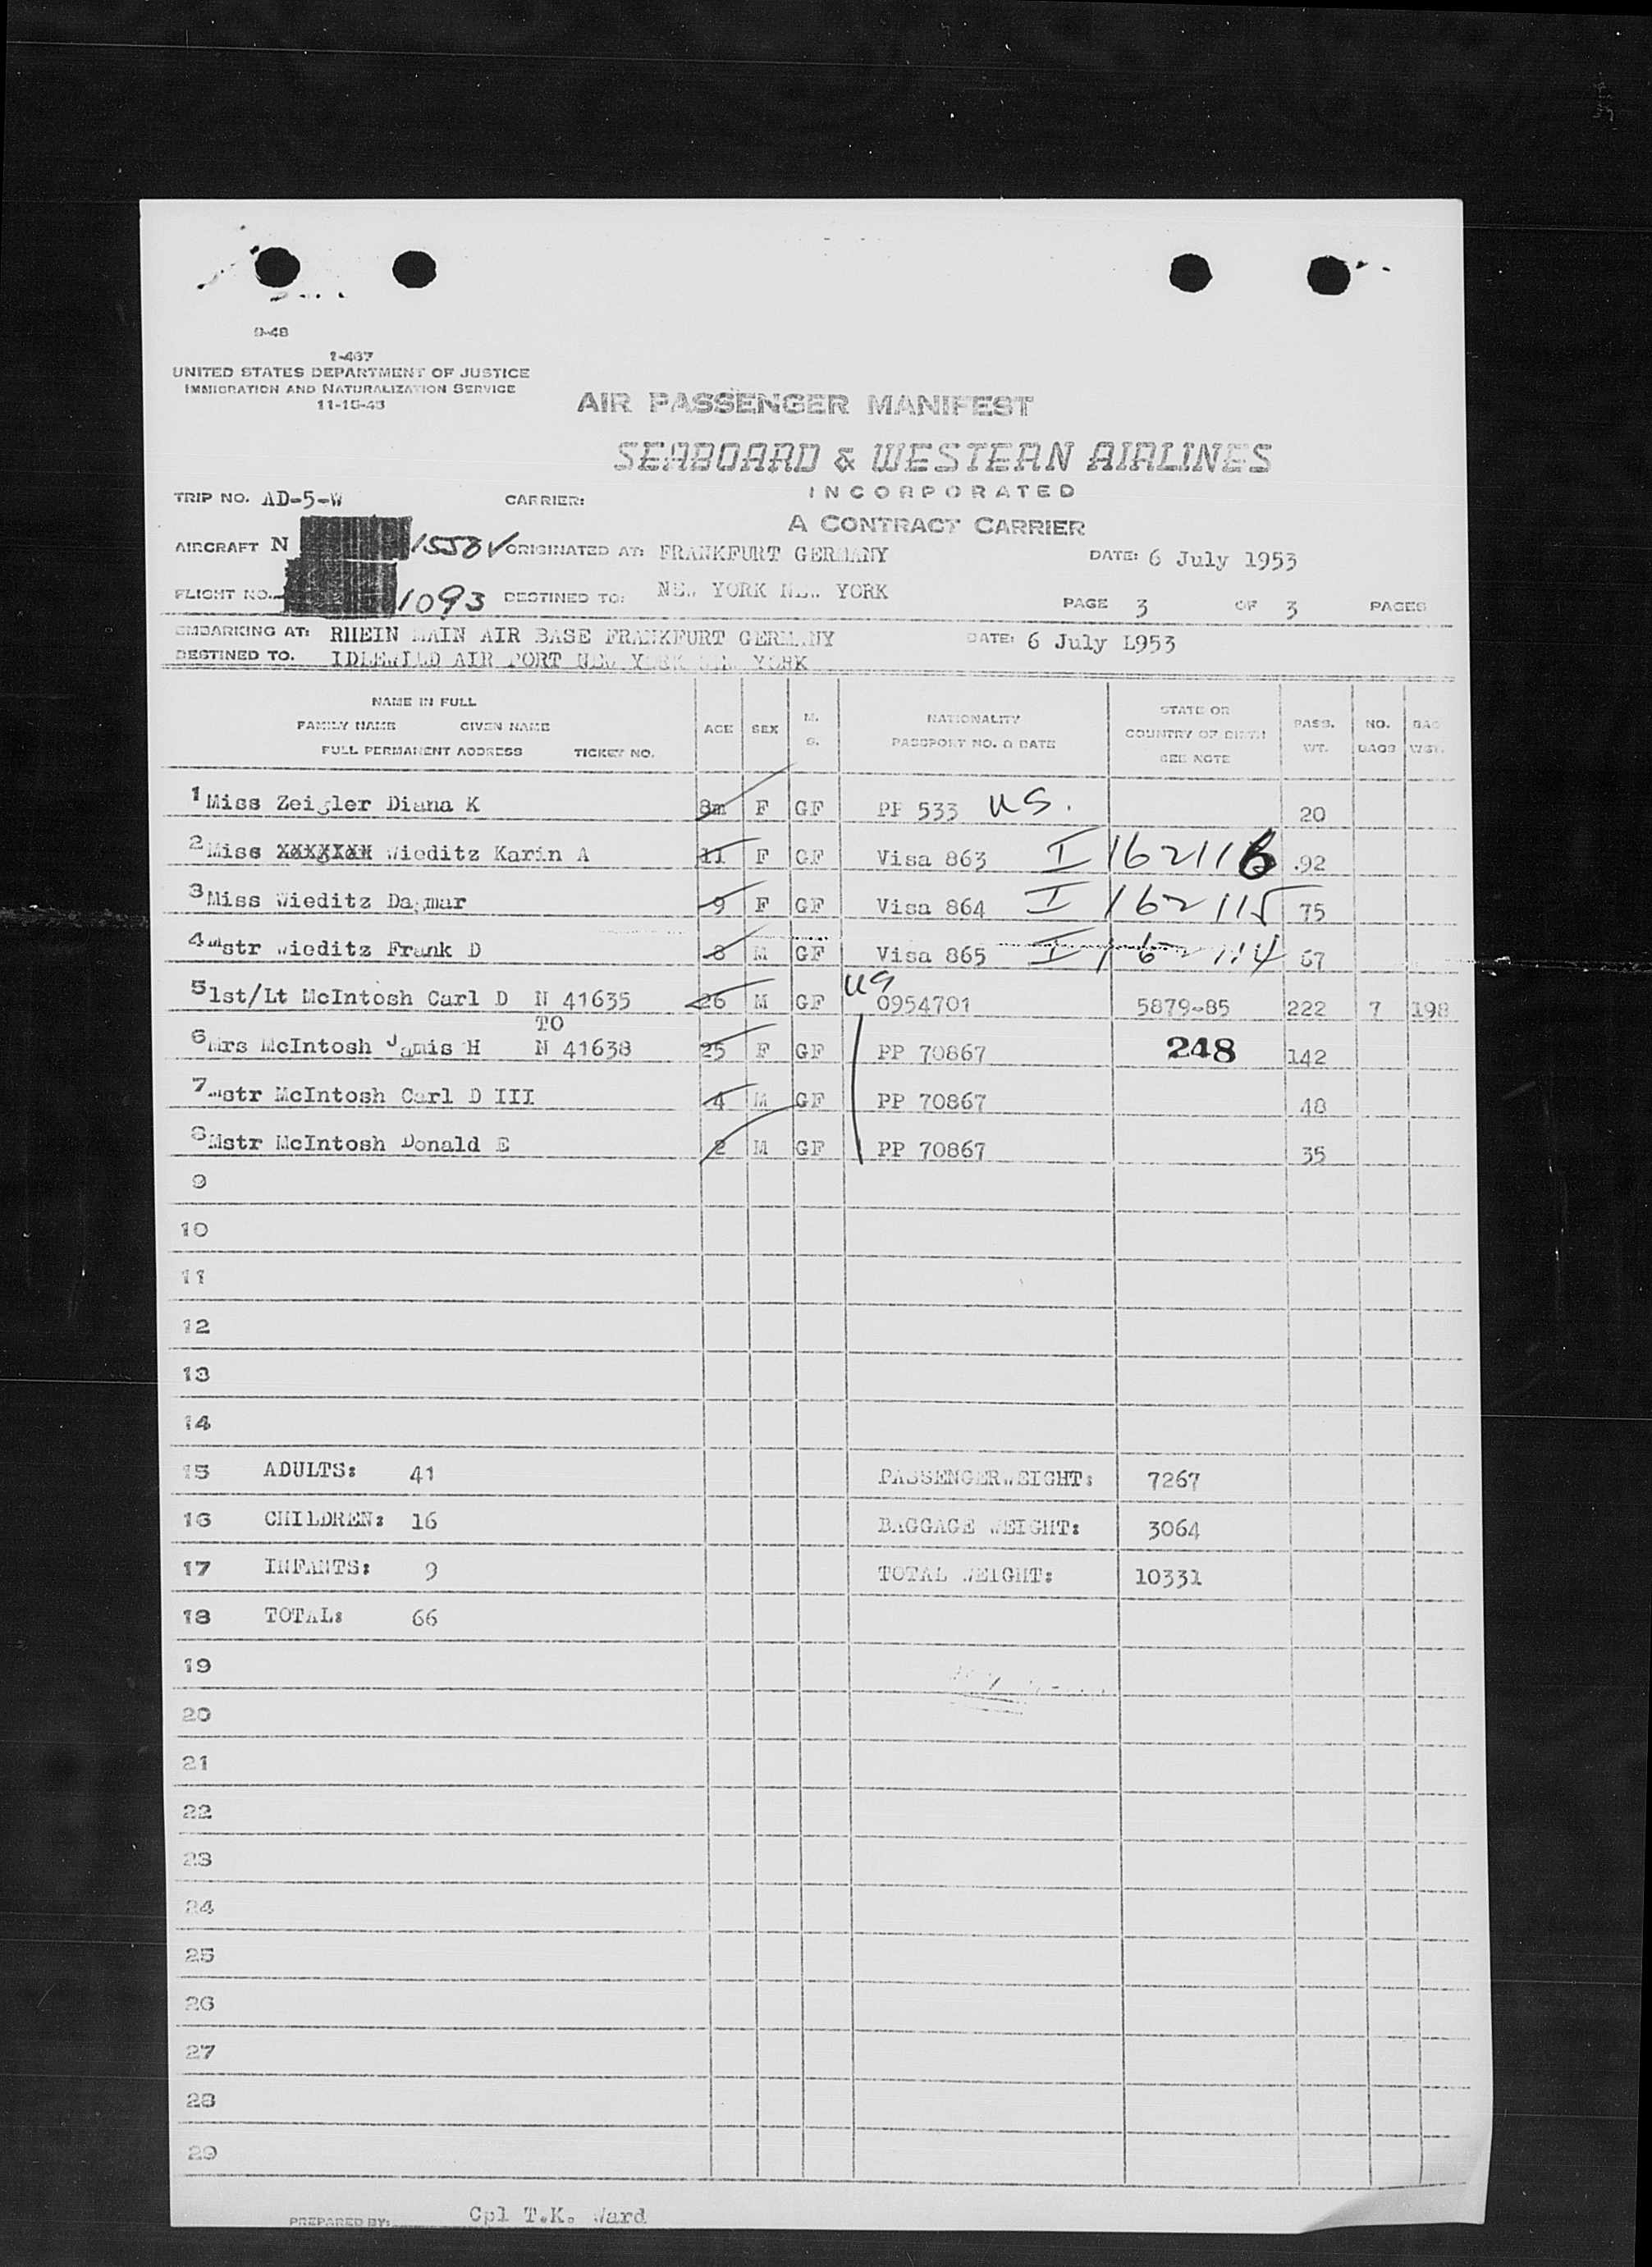 9-48
1-467
UNITED STATES DEPARTMENT OF JUSTICE
IMMIGRATION AND NATURALIZATION SERVICE
11-15-43
AIR PASSENGER MANIFEST
SEABOARD & WESTERN AIRLINES
INCORPORATED
A CONTRACT CARRIER
TRIP NO. AD-5-W CARRIER:
AIRCRAFT N ORIGINATED AT: FRANKFURT GERMANY DATE: 6 July 1953
FLIGHT NO. 1093 DESTINED TO: NEW YORK NEW YORK PAGE 3 OF 3 PAGES
EMBARKING AT: RHEIN MAIN AIR BASE FRANKFURT GERMANY DATE: 6 July L953
DESTINED TO. IDLEWILD AIR PORT NEW YORK NEW YORK
NAME IN FULL
FAMILY NAME GIVEN NAME
FULL PERMANENT ADDRESS TICKET NO.
AGE SEX M. S. NATIONALITY PASSPORT NO. & DATE STATE OR COUNTRY OF BIRTH SEE NOTE PASS. WT. NO. BAGS BAG WGT.
1 Miss Zeigler Diana K 8m F GF PP 533 US. 20
2 Miss XXXXXXX Wieditz Karin A 11 F GF Visa 863 I 162116 92
3 Miss Wieditz Dagmar 9 F GF Visa 864 I 162115 75
4 Mstr Wieditz Frank D 8 M GF Visa 865 I 162114 67
5 1st/Lt McIntosh Carl D N 41635 26 M GF US 0954701 5879-85 222 7 198
TO
6 Mrs McIntosh Janis H N 41638 25 F GF PP 70867 248 142
7 Mstr McIntosh Carl D III 4 M GF PP 70867 48
8 Mstr McIntosh Donald E 2 M GF PP 70867 35
9
10
11
12
13
14
15 ADULTS: 41 PASSENGERWEIGHT: 7267
16 CHILDREN: 16 BAGGAGE WEIGHT: 3064
17 INFANTS: 9 TOTAL WEIGHT: 10331
18 TOTAL: 66
19
20
21
22
23
24
25
26
27
28
29
PREPARED BY: Cpl T.K. Ward